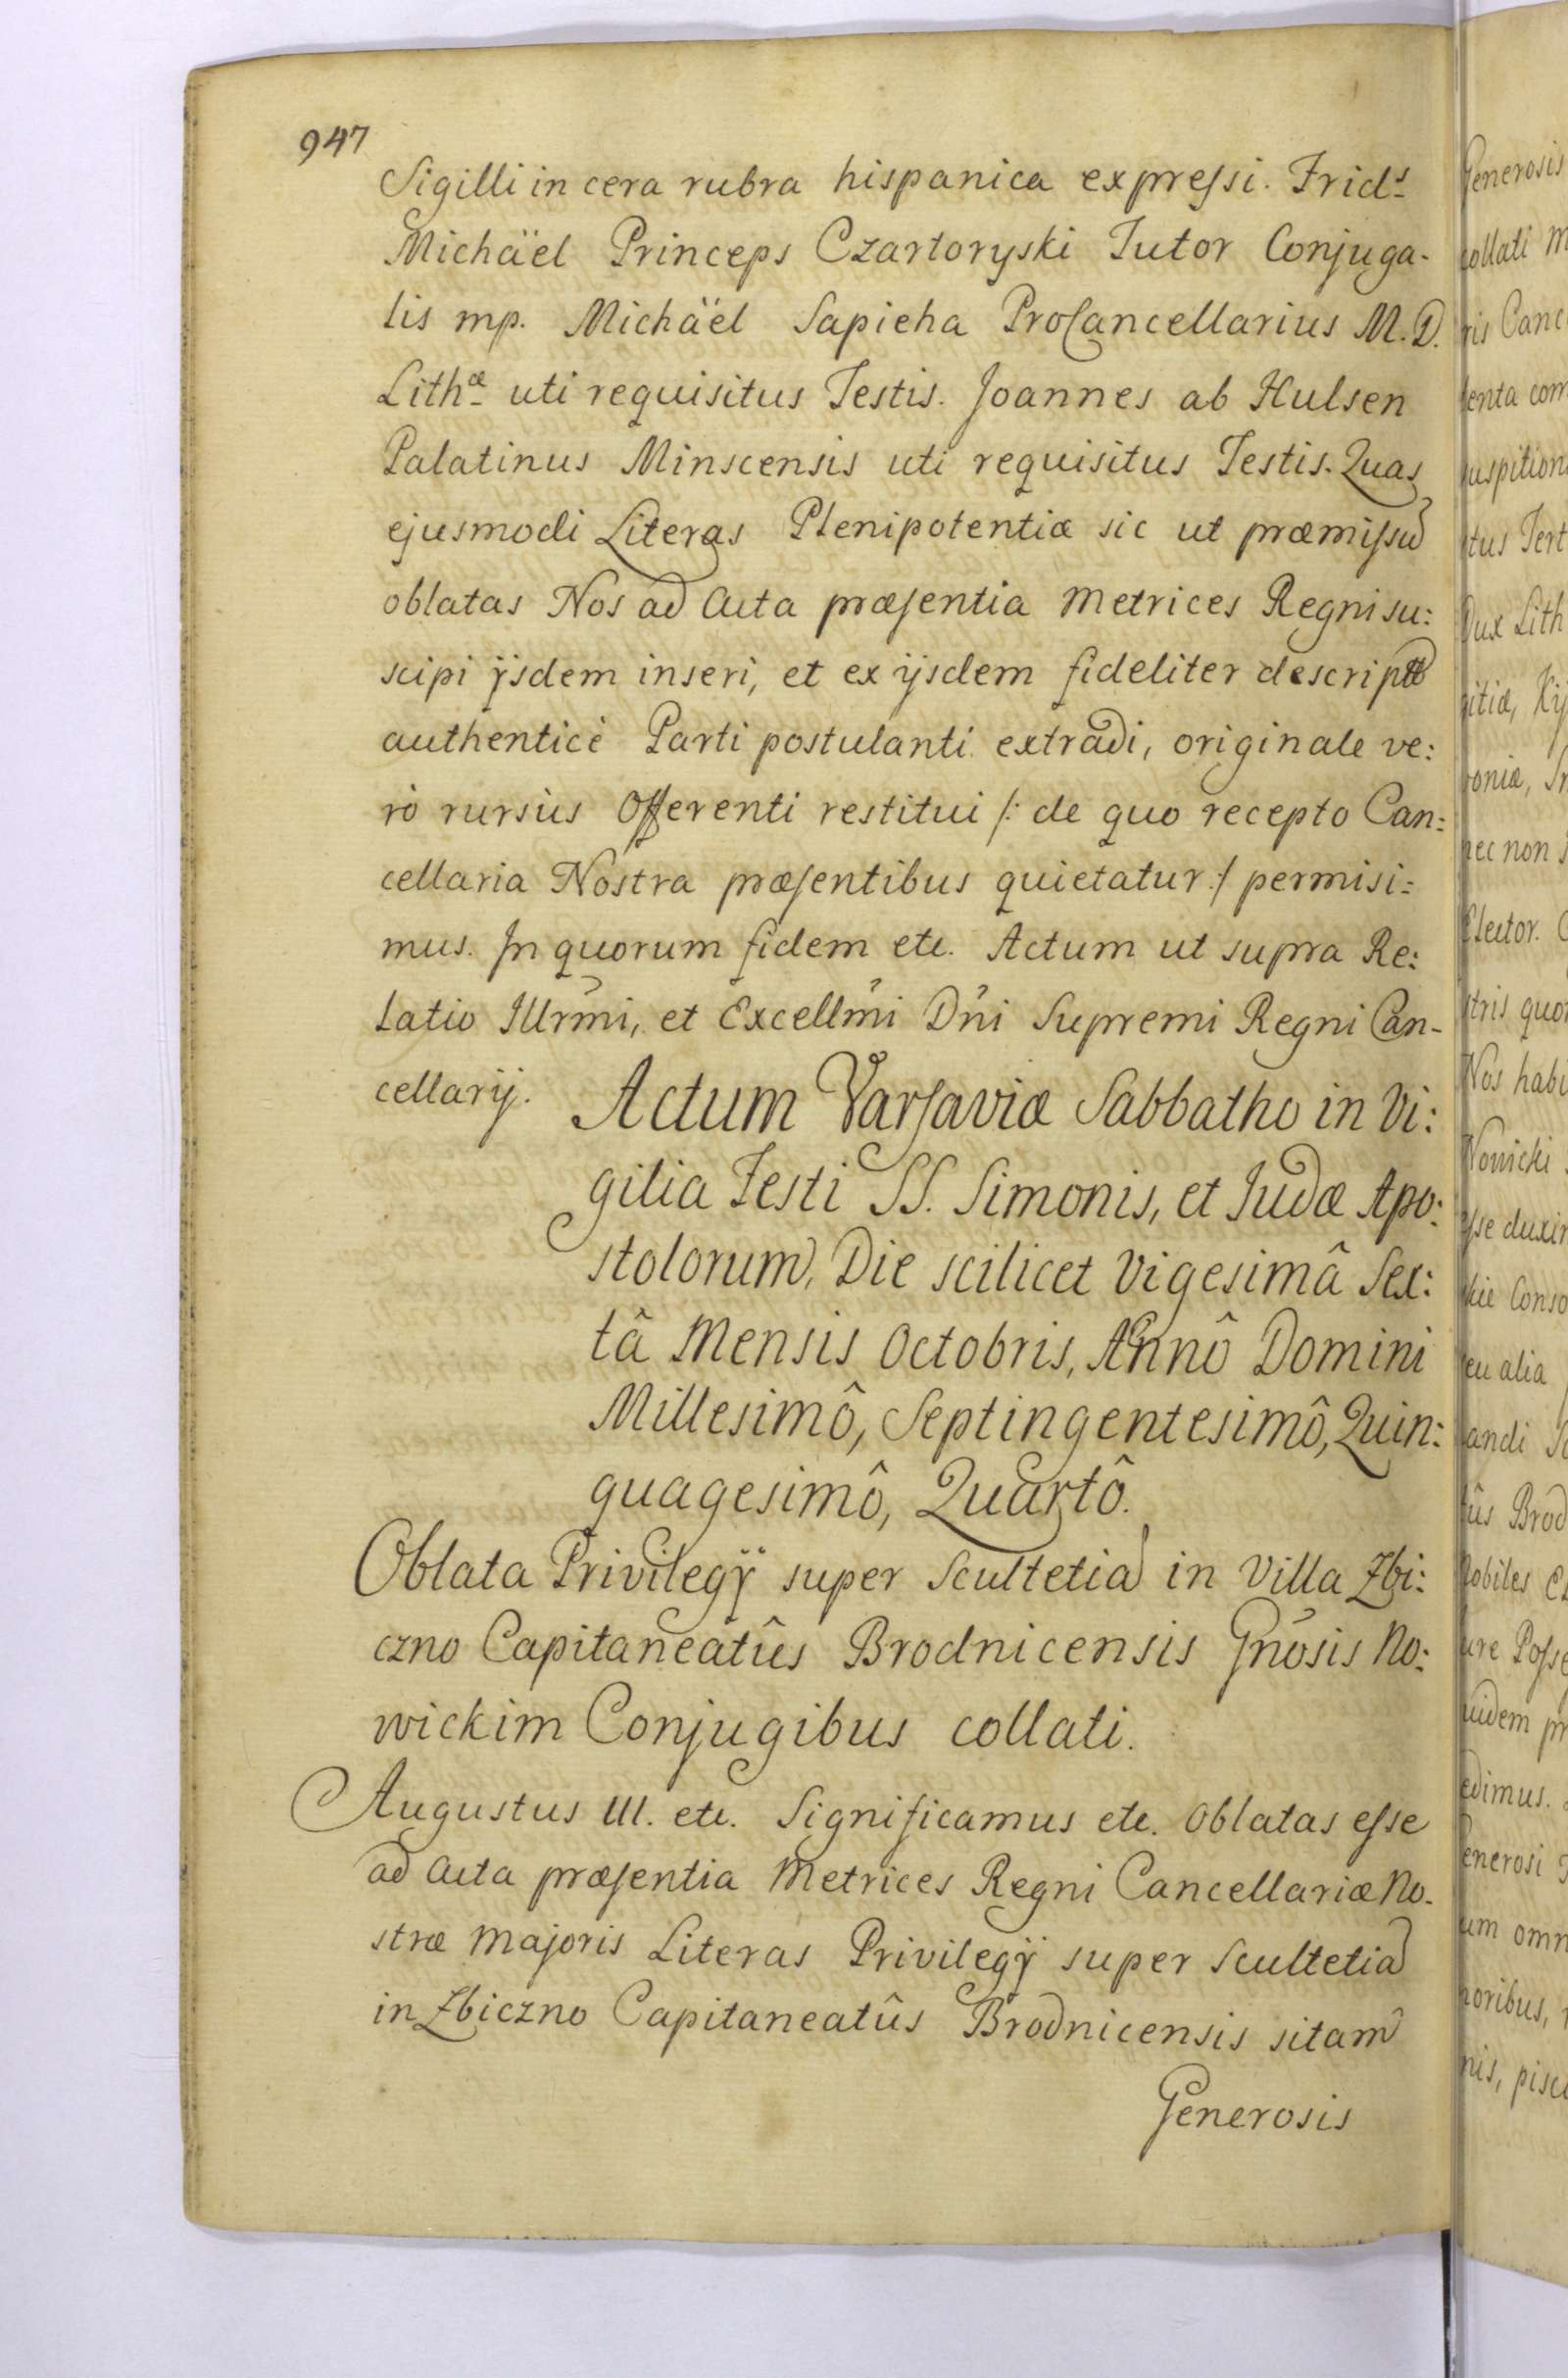 947
Sigilli in cera rubra hispanica expreſsi. Frid.s
Michäel Princeps Czartoryski Tutor Conjuga-
lis mp. Michäel Sapieha ProCancellarius M. D.
Lith.æ uti requisitus Testis. Joannes ab Hulsen
Palatinus Minscensis uti requisitus Testis. Quas
ejusmodi Literas Plenipotentiæ sic ut præmiſsũ
oblatas Nos ad Acta præſentia Metrices Regni su:
scipi ijsdem inseri, et ex ijsdem fideliter descriptũ
authenticè Parti postulanti extradi, originale ve:
rò rursùs Offerenti restitui /: de quo recepto Can:
cellaria Nostra præſentibus quietatur :/ permisi:
mus. In quorum fidem etc. Actum ut supra Re:
latio Illr̃mi, et Excellm̃i Dñi Supremi Regni Can-
cellarij.
Actum Varſaviæ Sabbatho in Vi:
gilia Festi SS. Simonis, et Judæ Apo:
stolorum, Die scilicet Vigesimâ Sex:
tâ Mensis Octobris, Annô Domini
Millesimô, Septingentesimô, Quin:
quagesimô, Quartô.
Oblata Privilegij super Scultetiã in Villa Zbi:
czno Capitaneatûs Brodnicensis Gñosis No:
wickim Conjugibus collati.
Augustus III. etc. Significamus etc. Oblatas eſse
ad Acta præſentia Metrices Regni Cancellariæ No-
stræ Majoris Literas Privilegij super Scultetiã
in Zbiczno Capitaneatûs Brodnicensis sitam
Generosis
Generosis
collati
ris Canc
Dux Lith
nec non
Elector.
stris quo
Nos hab
Nowicki
eſse duxi
seu alia
tûs Brod
Nobiles